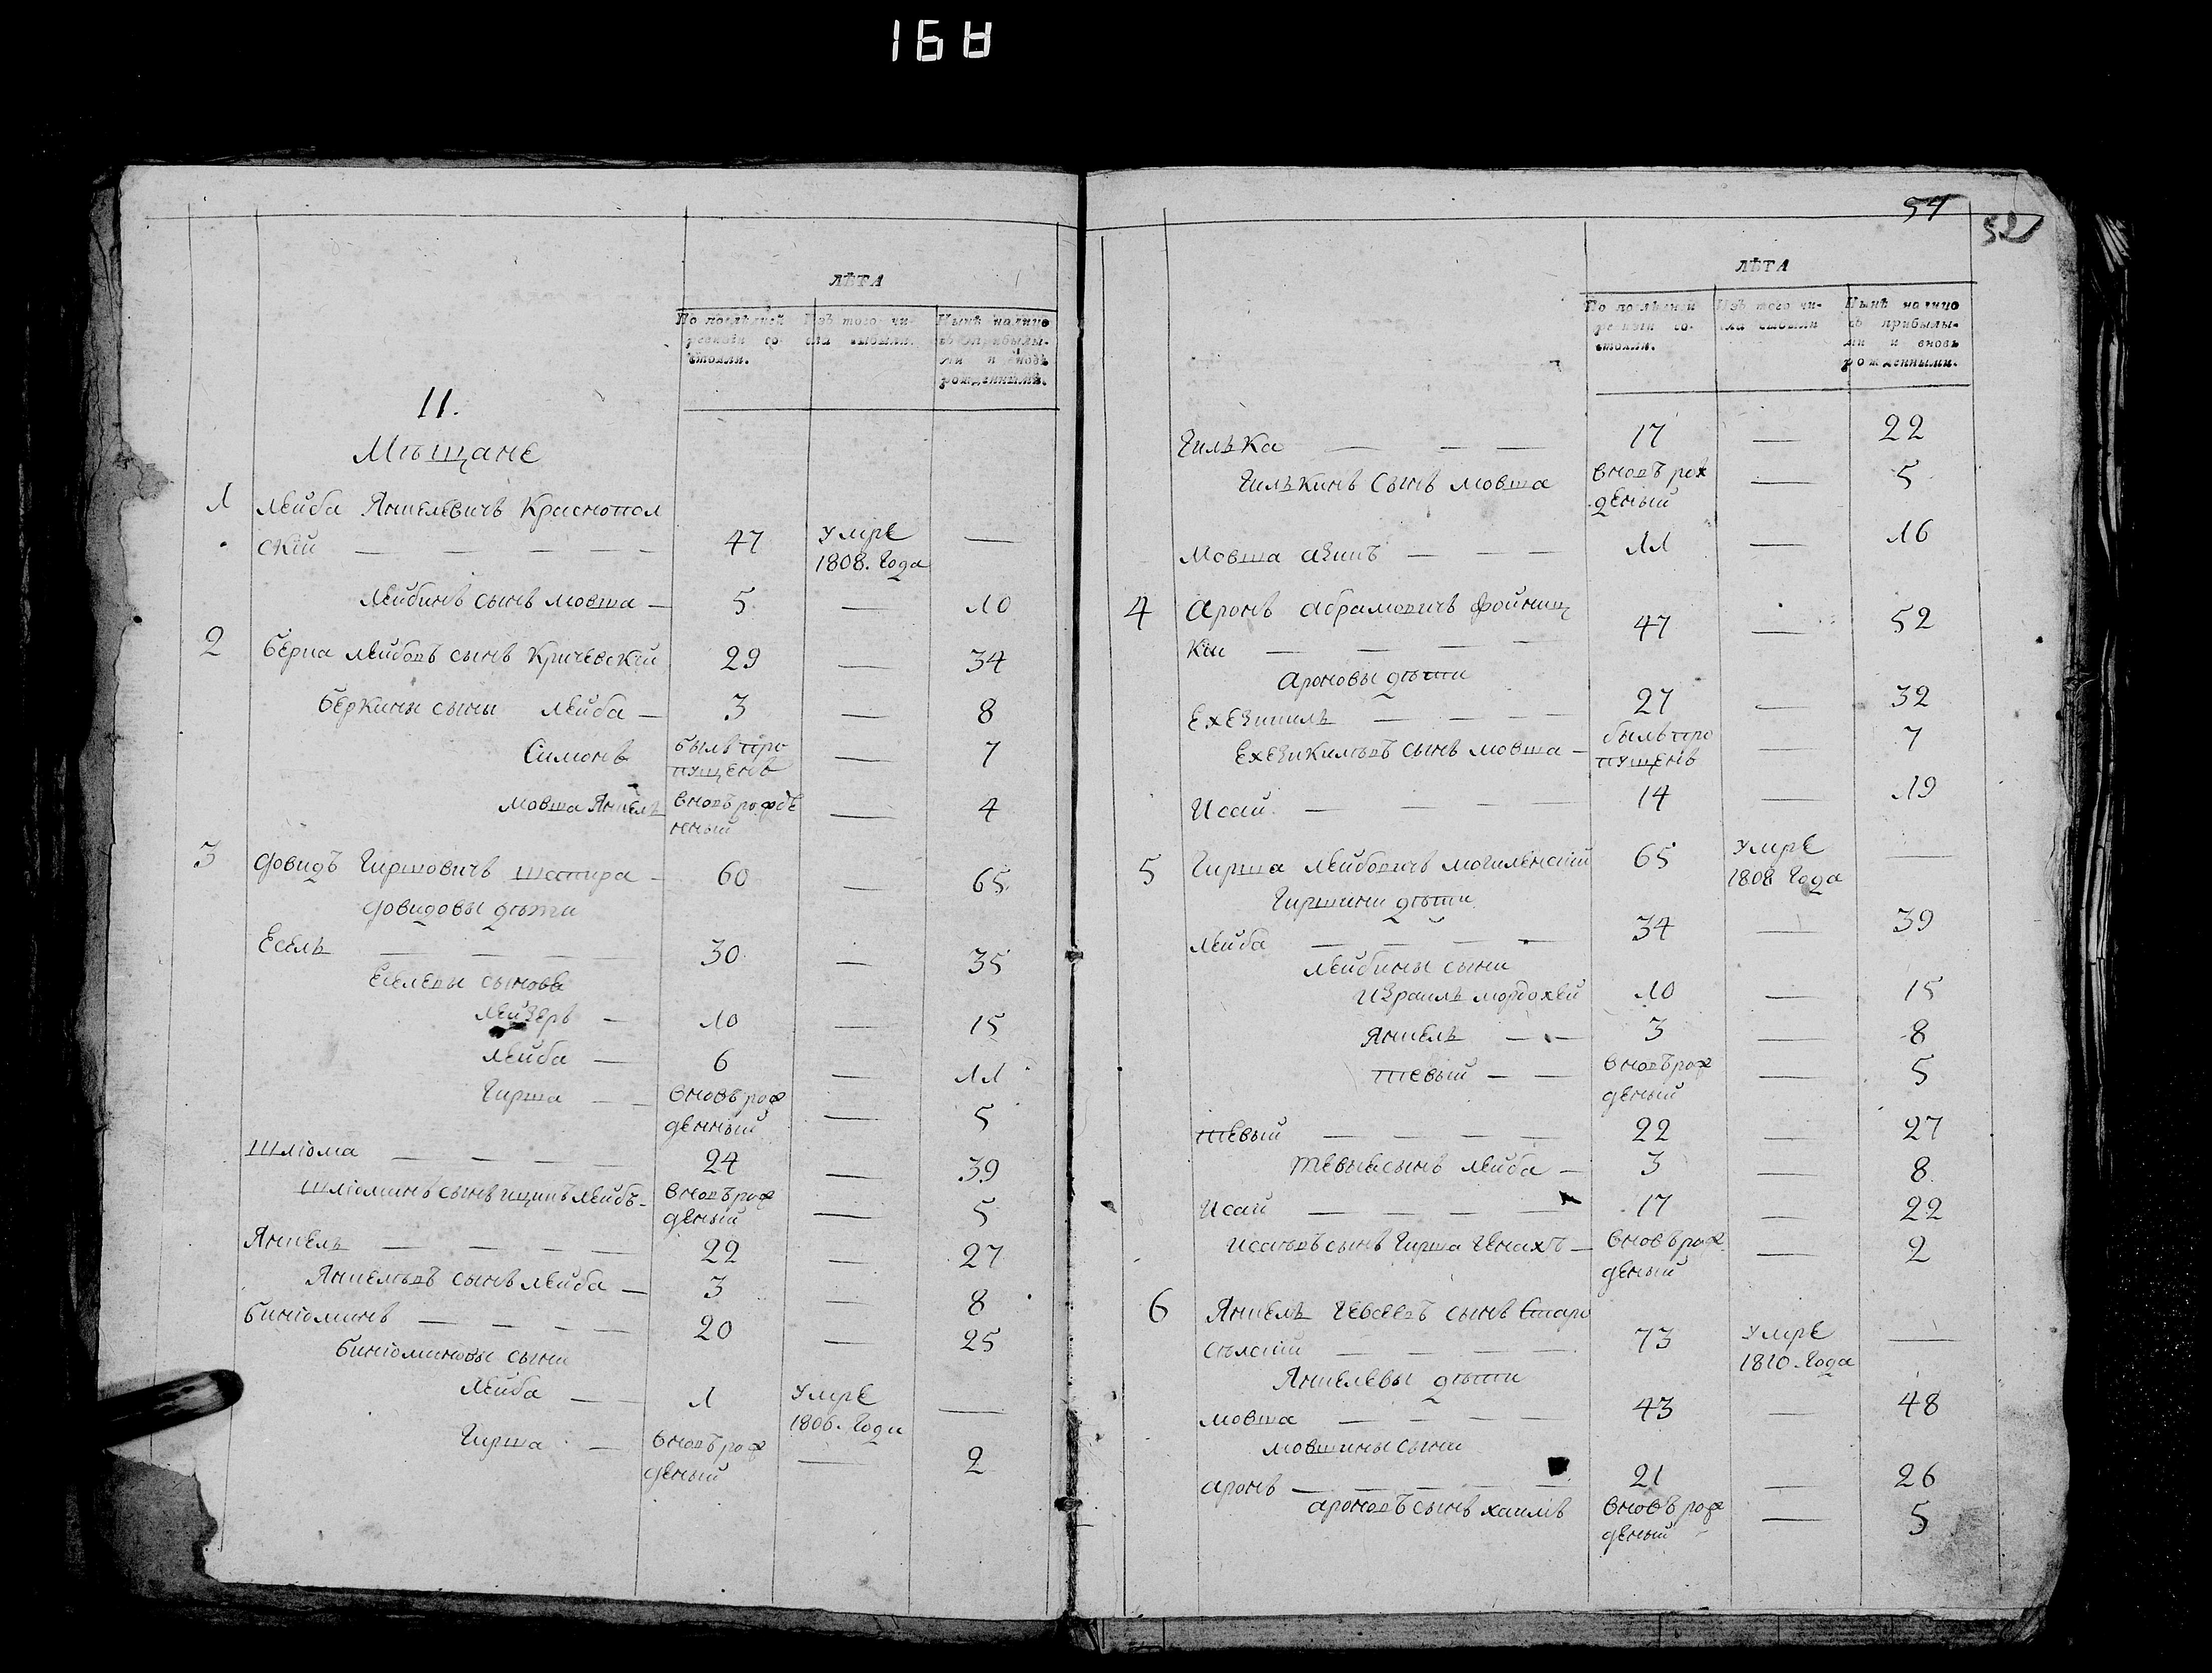 16 8
ЛѢТА
По послѣдней ревизіи состояли.
Изъ того числа выбыли
Нынѣ налицо съ прибылыми и вновь рожденными.
II.
Мѣщане
1 Лейба Янкелевичъ Краснопол
скій — 47 умре 1808. Года —
Лейбинъ сынъ мовша — 5 — 10
2 Берка лейбовъ сынъ Кричевскій 29 — 34
Беркины сыны Лейба — 3 — 8
Симонъ былъ пропущенъ — 7
мовша Янкель вновь рожденный — 4
3 Довидъ Гиршовичъ шапира — 60 — 65
довидовы дѣти
Есель — 30 — 35
Еселевы сыновя
лейзеръ — 10 — 15
лейба — 6 — 11
Гирша — вновь рожденный — 5
Шліома — 24 — 39
Шліоминъ сынъ ицикъ лейбъ — вновь рожденый — 5
Янкель — 22 — 27
Янкелѣвъ сынъ лейба — 3 — 8
Биніоминъ — 20 — 25
Биніоминовы сыни
лейба — 1 умре 1806. Года —
Гирша — вновь рожденый — 2
54
52
ЛѢТА
По послѣдней ревизіи состояли.
Изъ того числа выбыли
Нынѣ налицо съ прибылыми и вновь рожденными.
Гилька — 17 — 22
Гилькинъ сынъ мовша вновъ рожденый — 5
Мовша ацикъ — 11 — 16
4 Аронъ абрамовичъ фойниц
кій — 47 — 52
ароновы дѣти
Ехезикиль — 27 — 32
Ехезикилѣвъ сынъ мовша — былъ пропущенъ — 7
Исай — 14 — 19
5 Гирша лейбовичъ могиленскій 65 умре 1808 Года —
Гиршини дѣти
лейба — 34 — 39
лейбины сыни
израиль мордохей 10 — 15
Янкель — 3 — 8
тевый — вновъ рожденый — 5
тевый — 22 — 27
тевыевъ сынъ лейба — 3 — 8
Исай — 17 — 22
Исаѣвъ сынъ Гирша Генахъ — вновъ рожденый — 2
6 Янкель сынъ Старо
сѣлскій — 73 умре 1810. Года —
Янкелевы дѣти
мовша — 43 — 48
мовшины сыни
аронъ — 21 — 26
ароновъ сынъ хаимъ вновъ рожденый — 5